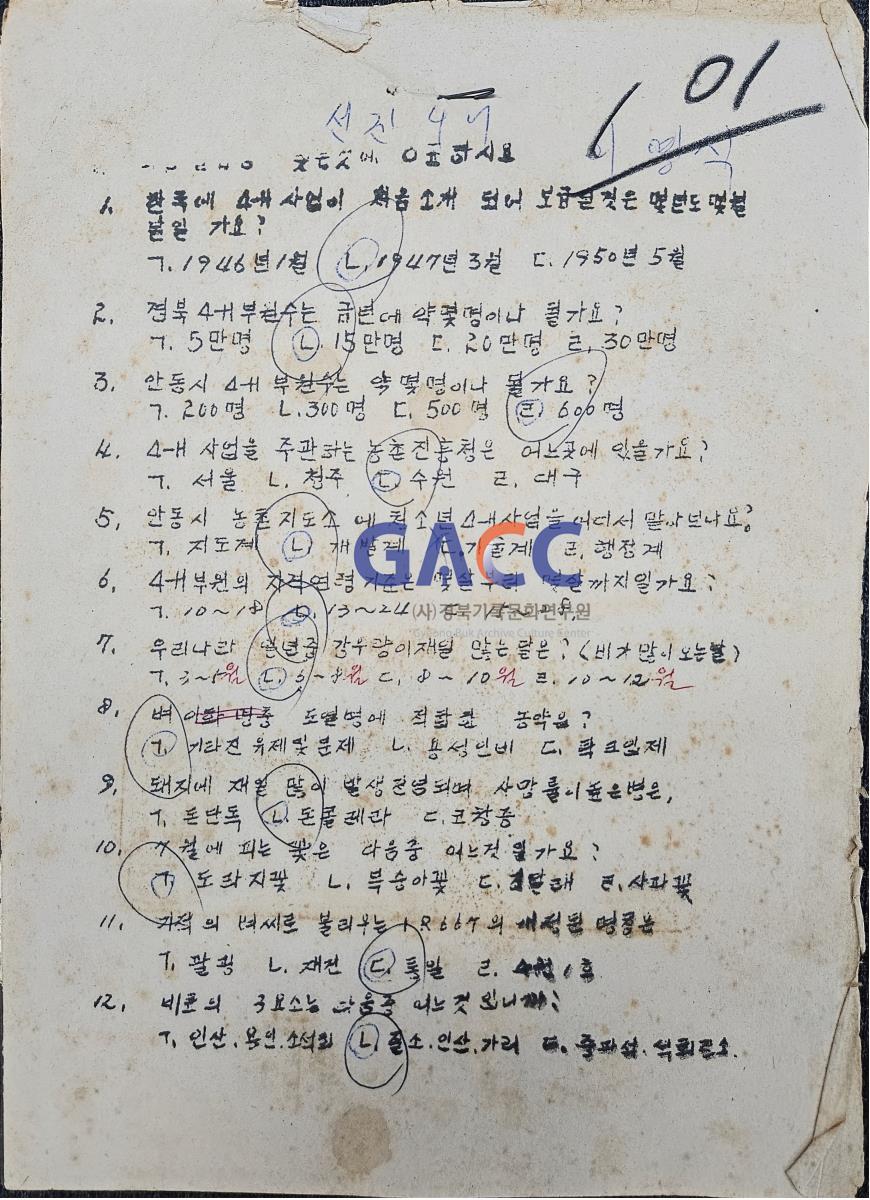 101
선진 4H
이명식
맞는것에 O표하시요
1. 한국에 4-H 사업이 처음 소개 되어 보급된것은 몇년도 몇월
달일 가요?
ㄱ. 1946년 1월 ㄴ. 1947년 3월 ㄷ. 1950년 5월
2. 경북 4-H 부원수는 금년에 약몇명이나 될가요?
ㄱ. 5만명 ㄴ. 15만명 ㄷ. 20만명 ㄹ. 30만명
3. 안동시 4-H 부원수는 약 몇명이나 될가요?
ㄱ. 200명 ㄴ. 300명 ㄷ. 500명 ㄹ. 600명
4. 4-H 사업을 주관하는 농촌진흥청은 어느곳에 있을가요?
ㄱ. 서울 ㄴ. 청주 ㄷ. 수원 ㄹ. 대구
5. 안동시 농촌지도소에 청소년 4-H사업을 어디서 맡아보나요?
ㄱ. 지도계 ㄴ. 개발계 ㄷ. 기술계 ㄹ. 행정계
6. 4-H부원의 자격연령 기준은 몇살부터 몇살까지일가요?
ㄱ. 10~18 ㄴ. 13~24 ㄷ.
7. 우리나라 일년중 강우량이 재일 많는 달은? (비가 많이 오는달)
ㄱ. 3~5월 ㄴ. 6~8월 ㄷ. 8~10월 ㄹ. 10~12월
8. 벼 도열병에 적합한 농약은?
ㄱ. 키타진 유제및분제 ㄴ. 용성인비 ㄷ.
9. 돼지에 재일 많이 발생전염되며 사망률이 높은병은,
ㄱ. 돈단독 ㄴ. 돈콜레라 ㄷ. 코창증
10. 7월에 피는 꽃은 다음중 어느것일가요?
ㄱ. 도라지꽃 ㄴ. 복숭아꽃 ㄷ. 진달래 ㄹ. 사과꽃
11. 기적의 벼씨로 불리우는 IR667의 새정된 명칭은
ㄱ. 팔굉 ㄴ. 재건 ㄷ. 통일 ㄹ.
12. 비료의 3요소는 다음중 어느것 입니까?
ㄱ. 인산.용인.소석회 ㄴ. 질소.인산.가리 ㄷ.
GACC
(사)경북기록문화연구원